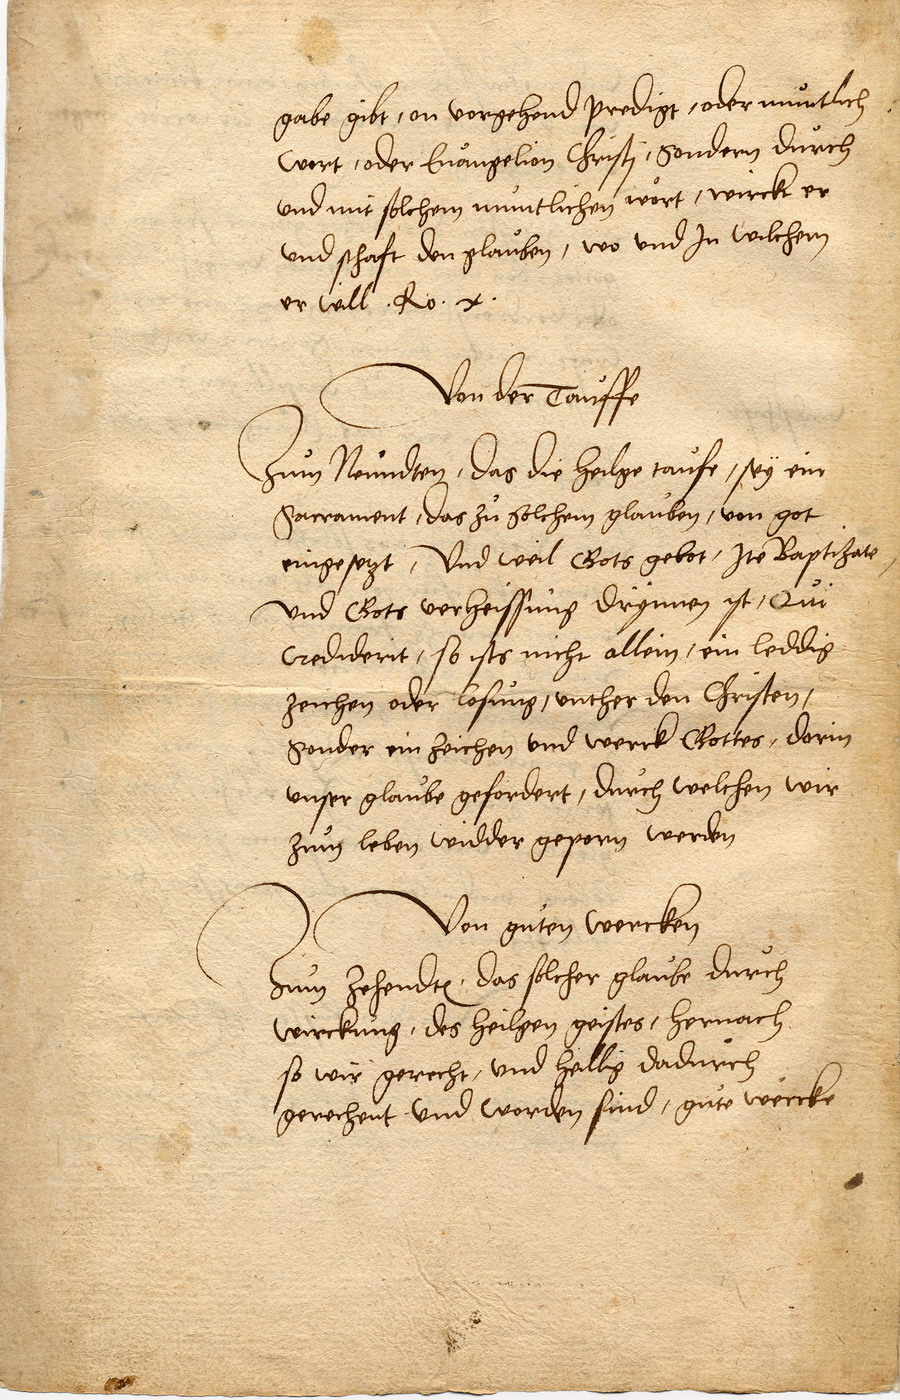 gabe gibt, on vorgehend predigt, oder muntlich
wort, oder Euangelion Christi, sondern durch
und mit solchem muntlichen wort, wirckt er
und schaft den glauben, wo und In wilchem
er will. Ro. x.
Von der Tauffe
Zum Neundten, das die heilge taufe, sey ein
Sacrament, das zu solchem glauben, von got
eingesetzt, Und weil Gots gebot, Ite Baptizate,
und Gots verheissung drynnen ist, Qui
crediderit, so ists nicht allein, ein leddig
zeichen oder losung, unther den Christen,
sonder ein zeichen und werck Gottes, dorin
unser glaube gefordert, durch welchen wir
zum leben widder geporn werden
Von guten wercken
Zum Zehendt, das solcher glaube durch
wirckung, des heilgen geistes, hernach
so wir gerecht, und heillig dadurch
gerechent und worden sind, gute wercke